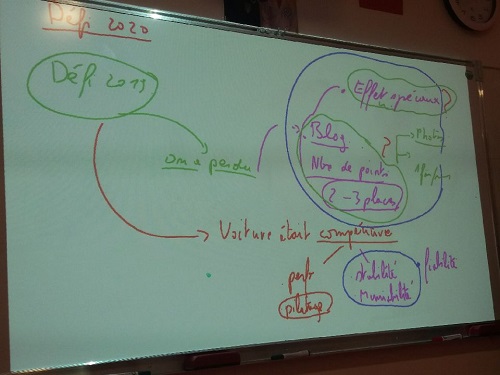 Défi 2020
Défi 2019
on a perdu
Effet spéciaux
Blog
Nbr de points
2-3 places
?
Photos
Voiture était compétitive
perf
pilotage
stabilité
maniabilité
fiabilité